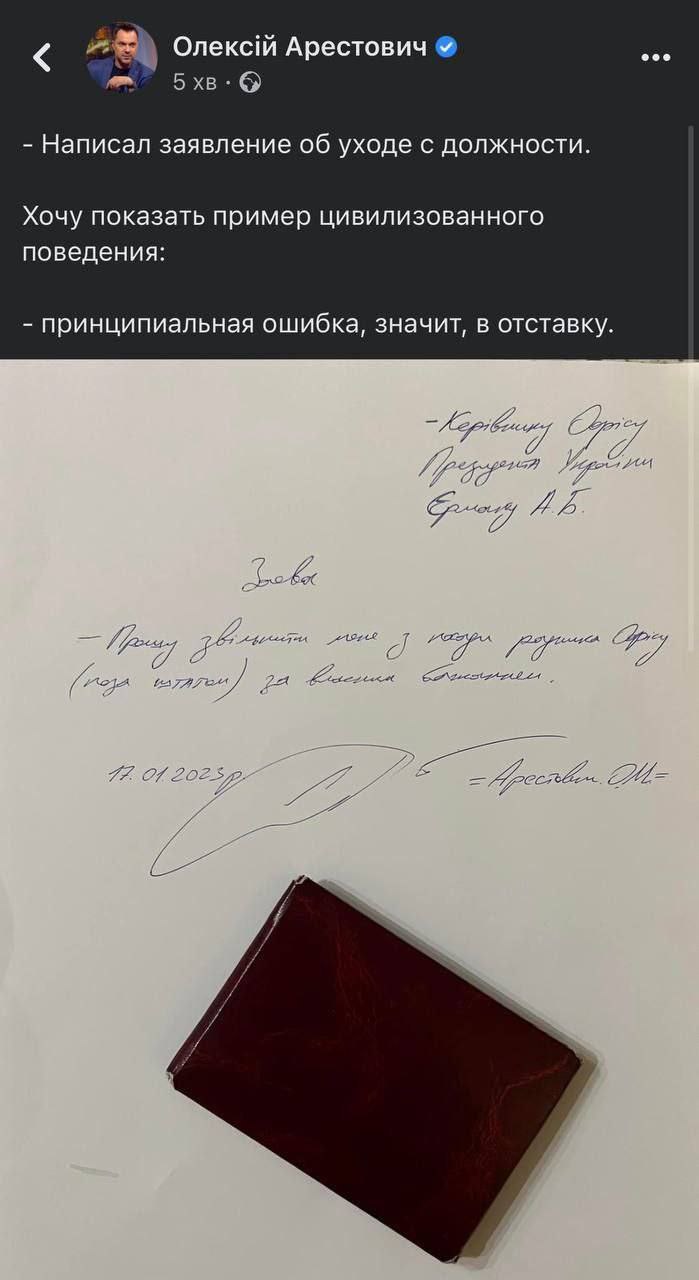 Олексій Арестович
5 хв ·
- Написал заявление об уходе с должности.
Хочу показать пример цивилизованного
поведения:
- принципиальная ошибка, значит, в отставку.
- Керівнику Офісу
Президента України
Єрмаку А.Б.
Заява
- Прошу звільнити мене з посади радника Офісу
(поза штатом) за власним бажанням.
17.01.2023р
=Арестович О.М.=